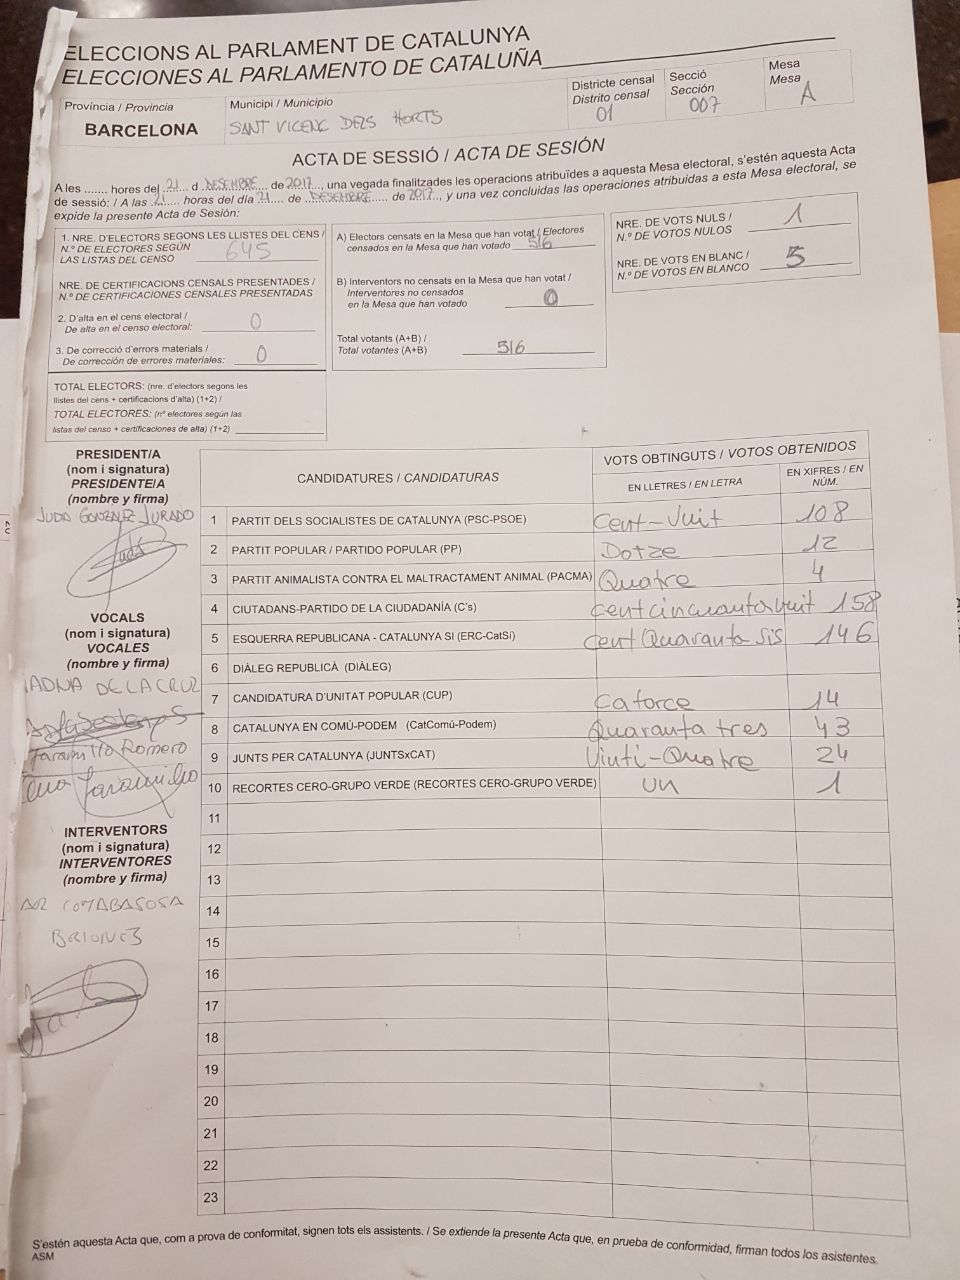 ELECCIONS AL PARLAMENT DE CATALUNYA
ELECCIONES AL PARLAMENTO DE CATALUÑA
Província / Provincia
BARCELONA
Municipi / Municipio
SANT VICENÇ DELS HORTS
Districte censal
Distrito censal
01
Secció
Sección
007
Mesa
Mesa
A
ACTA DE SESSIÓ / ACTA DE SESIÓN
A les ....... hores del 21 d DESEMBRE de 2017, una vegada finalitzades les operacions atribuïdes a aquesta Mesa electoral, s'estén aquesta Acta
de sessió: / A las 21 horas del día 21 de DESEMBRE de 2017, y una vez concluidas las operaciones atribuidas a esta Mesa electoral, se
expide la presente Acta de Sesión:
1. NRE. D'ELECTORS SEGONS LES LLISTES DEL CENS /
N.º DE ELECTORES SEGÚN
LAS LISTAS DEL CENSO 645
NRE. DE CERTIFICACIONS CENSALS PRESENTADES /
N.º DE CERTIFICACIONES CENSALES PRESENTADAS
2. D'alta en el cens electoral /
De alta en el censo electoral: 0
3. De correcció d'errors materials /
De corrección de errores materiales: 0
TOTAL ELECTORS: (nre. d'electors segons les
llistes del cens + certificacions d'alta) (1+2) /
TOTAL ELECTORES: (nº electores según las
listas del censo + certificaciones de alta) (1+2)
A) Electors censats en la Mesa que han votat / Electores
censados en la Mesa que han votado 516
B) Interventors no censats en la Mesa que han votat /
Interventores no censados
en la Mesa que han votado 0
Total votants (A+B) /
Total votantes (A+B) 516
NRE. DE VOTS NULS /
N.º DE VOTOS NULOS 1
NRE. DE VOTS EN BLANC /
N.º DE VOTOS EN BLANCO 5
PRESIDENT/A
(nom i signatura)
PRESIDENTE/A
(nombre y firma)
JUDA GONZALEZ JURADO
VOCALS
(nom i signatura)
VOCALES
(nombre y firma)
DE LA CRUZ
Jaramillo Romero
Jaramillo
INTERVENTORS
(nom i signatura)
INTERVENTORES
(nombre y firma)
BRIONES
CANDIDATURES / CANDIDATURAS
VOTS OBTINGUTS / VOTOS OBTENIDOS
EN LLETRES / EN LETRA
EN XIFRES / EN
NÚM.
1 PARTIT DELS SOCIALISTES DE CATALUNYA (PSC-PSOE) Cent-Vuit 108
2 PARTIT POPULAR / PARTIDO POPULAR (PP) Dotze 12
3 PARTIT ANIMALISTA CONTRA EL MALTRACTAMENT ANIMAL (PACMA) Quatre 4
4 CIUTADANS-PARTIDO DE LA CIUDADANÍA (C's) Cent cincuanta vuit 158
5 ESQUERRA REPUBLICANA - CATALUNYA SI (ERC-CatSí) Cent Quaranta sis 146
6 DIÀLEG REPUBLICÀ (DIÀLEG)
7 CANDIDATURA D'UNITAT POPULAR (CUP) Catorce 14
8 CATALUNYA EN COMÚ-PODEM (CatComú-Podem) Quaranta tres 43
9 JUNTS PER CATALUNYA (JUNTSxCAT) Vinti-Quatre 24
10 RECORTES CERO-GRUPO VERDE (RECORTES CERO-GRUPO VERDE) un 1
11
12
13
14
15
16
17
18
19
20
21
22
23
S'estén aquesta Acta que, com a prova de conformitat, signen tots els assistents. / Se extiende la presente Acta que, en prueba de conformidad, firman todos los asistentes.
ASM